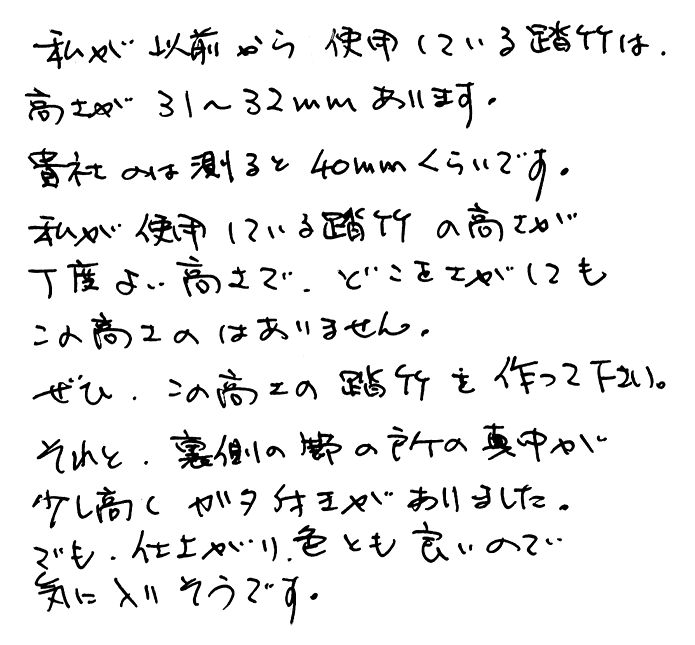 私が以前から使用している踏竹は、
高さが31〜32mmあります。
貴社のは測ると40mmくらいです。
私が使用している踏竹の高さが
丁度よい高さで、どこをさがしても
この高さのはありません。
ぜひ、この高さの踏竹を作って下さい。
それと、裏側の節の所の真中が
少し高くガタ付きがありました。
でも、仕上がり、色とも良いので
気に入りそうです。